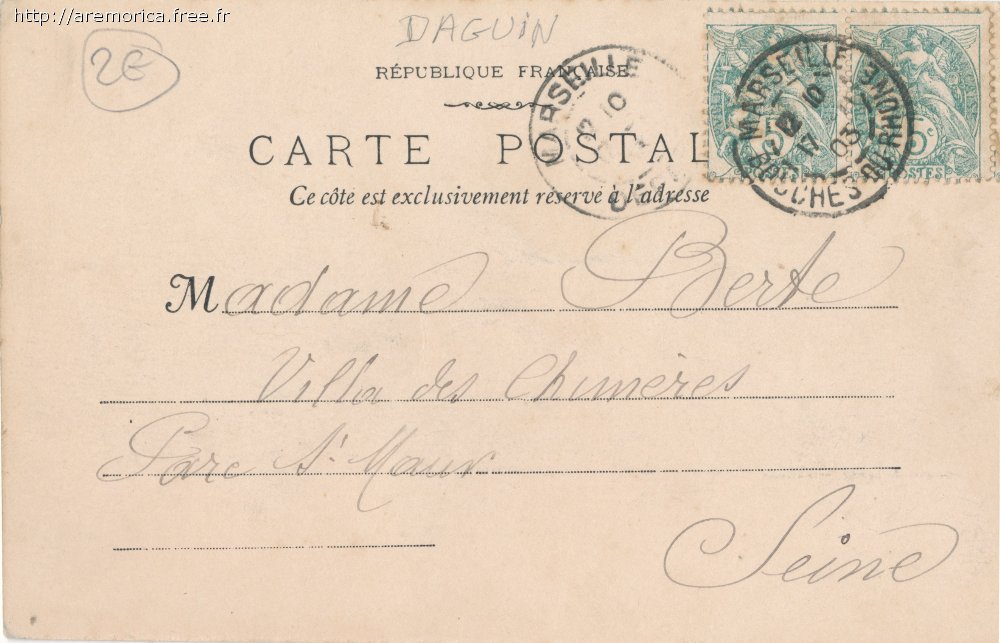 http://aremorica.free.fr
2E
DAGUIN
RÉPUBLIQUE FRANÇAISE
CARTE POSTAL
Ce côté est exclusivement réservé à l'adresse
MARSEILLE
10
MARSEILLE
10
12
03
BOUCHES DU RHONE
5c
POSTES
Madame Berte
Villa des Chimères
Parc St Maur
Seine